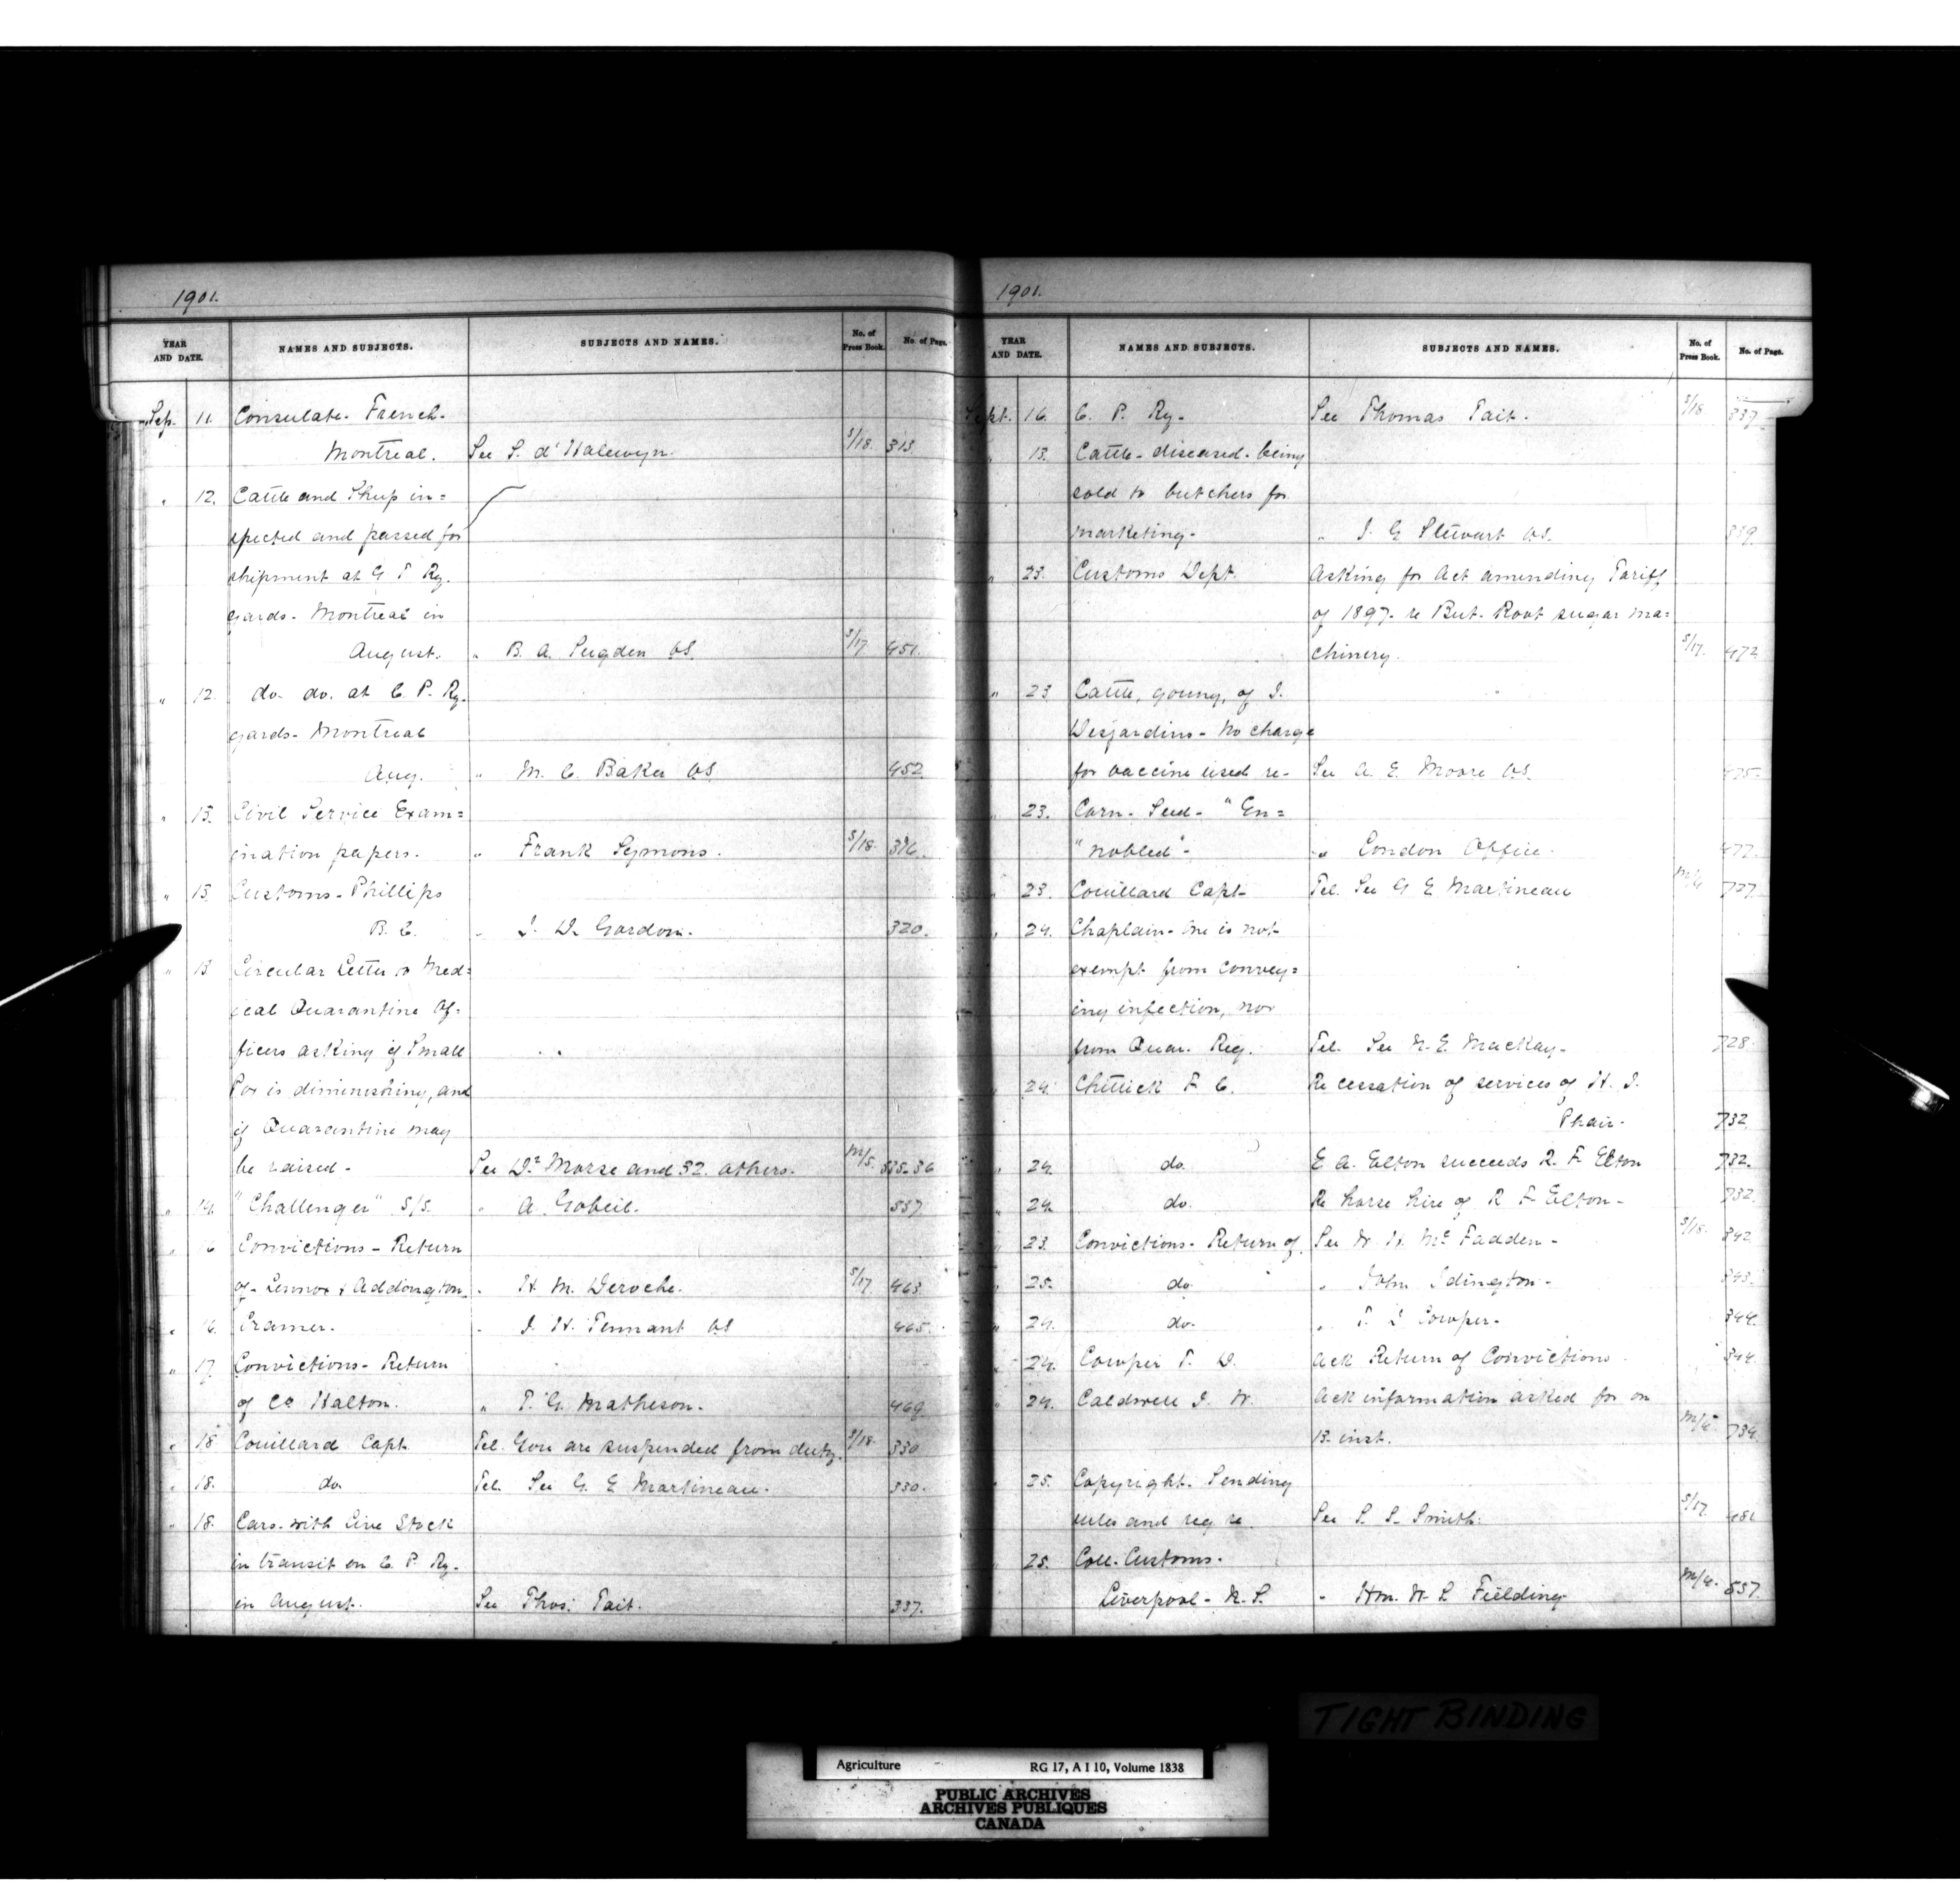 1901.
YEAR AND DATE. NAMES AND SUBJECTS. SUBJECTS AND NAMES. No. of Press Book. No. of Page.
Sep. 11. Consulate. French.
Montreal. See S. d'Halewyn. S/18. 313.
" 12. Cattle and Sheep in=
spected and passed for
shipment at G T Ry.
yards. Montreal in
August. " B. A. Sugden VS. S/17. 451.
" 12. do. do. at C. P. Ry.
yards. Montreal
Aug. " M. C. Baker VS. 452.
" 13. Civil Service Exam=
ination papers. " Frank Symons. S/18. 316.
" 13. Customs - Phillips
B. C. " J. D. Gordon. 320.
" 13. Circular Letter to Med=
ical Quarantine Of-
ficers asking if Small
Pox is diminishing, and
if Quarantine may
be raised - See Dr. Morse and 32. others. M/5. 535-36
" 14. "Challenger" S/S. " A. Gobeil. 557
" 16 Convictions - Return
of - Lennox & Addington. " H. M. Deroche. S/17 463.
" 16. Cramer. " J. H. Tennant VS 465.
" 17. Convictions - Return
of Co. Halton. " T. G. Matheson. 469.
" 18 Couillard Capt. Tel. You are suspended from duty. S/18. 330
" 18. do. Tel. See G. E Martineau. 330.
" 18. Cars. with Live Stock
in transit on C. P. Ry.
in August. See Thos: Tait. 337.
1901.
YEAR AND DATE. NAMES AND SUBJECTS. SUBJECTS AND NAMES. No. of Press Book. No. of Page.
Sept. 16. C. P. Ry. See Thomas Tait. S/18 337.
" 13. Cattle - diseased - being
sold to butchers for
marketing - " J. G Stewart VS. 339.
" 23. Customs Dept. Asking for Act amending Tariff
of 1897. re Beet. Root sugar ma=
chinery. S/17. 472
" 23 Cattle, young, of J.
Desjardins - No charge
for vaccine used re - See A. E. Moore VS. 475.
" 23. Corn - Seed - "En=
"nobled" - " London Office. 477.
" 23. Couillard Capt. Tel. See G E Martineau 727.
" 24. Chaplain - One is not
exempt from convey=
ing infection, nor
from Quar. Reg. Tel. See N. E. MacKay - 728.
" 24. Chittick F. C. Re cessation of services of H. J.
Phair. 732.
" 24. do. E A. Elton succeeds R. F. Elton 732.
" 24. do. Re horse hire of R F Elton - 732.
" 23. Convictions - Return of. See W. H. Mc Fadden - S/18. 342
" 25. do " John Idington - 343.
" 24. do. " T. D Cowper - 344.
" 24. Cowper T. D. Ack Return of Convictions. 344.
" 24. Caldwell J. W. Ack information asked for on
13. inst. 734.
" 25. Copyright. Sending
rules and reg re See S. S. Smith. S/17. 481
" 25. Coll. Customs.
Liverpool - N. S. " Hon. W. S. Fielding M/4. 557.
TIGHT BINDING
Agriculture RG 17, A I 10, Volume 1838
PUBLIC ARCHIVES
ARCHIVES PUBLIQUES
CANADA